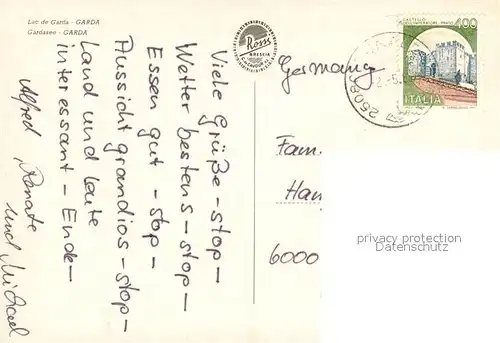 Lac de Garda - GARDA
Gardasee - GARDA
Ross
BRESCIA
Viele Grüße - stop -
Wetter bestens - stop -
Essen gut - stop -
Aussicht grandios - stop -
Land und Leute
interessant - Ende -
Alfred, Renate
und Michael
Germany
Fam.
Han
6000
CASTELLO
400
ITALIA
privacy protection
www.ansichtskarten-center.de